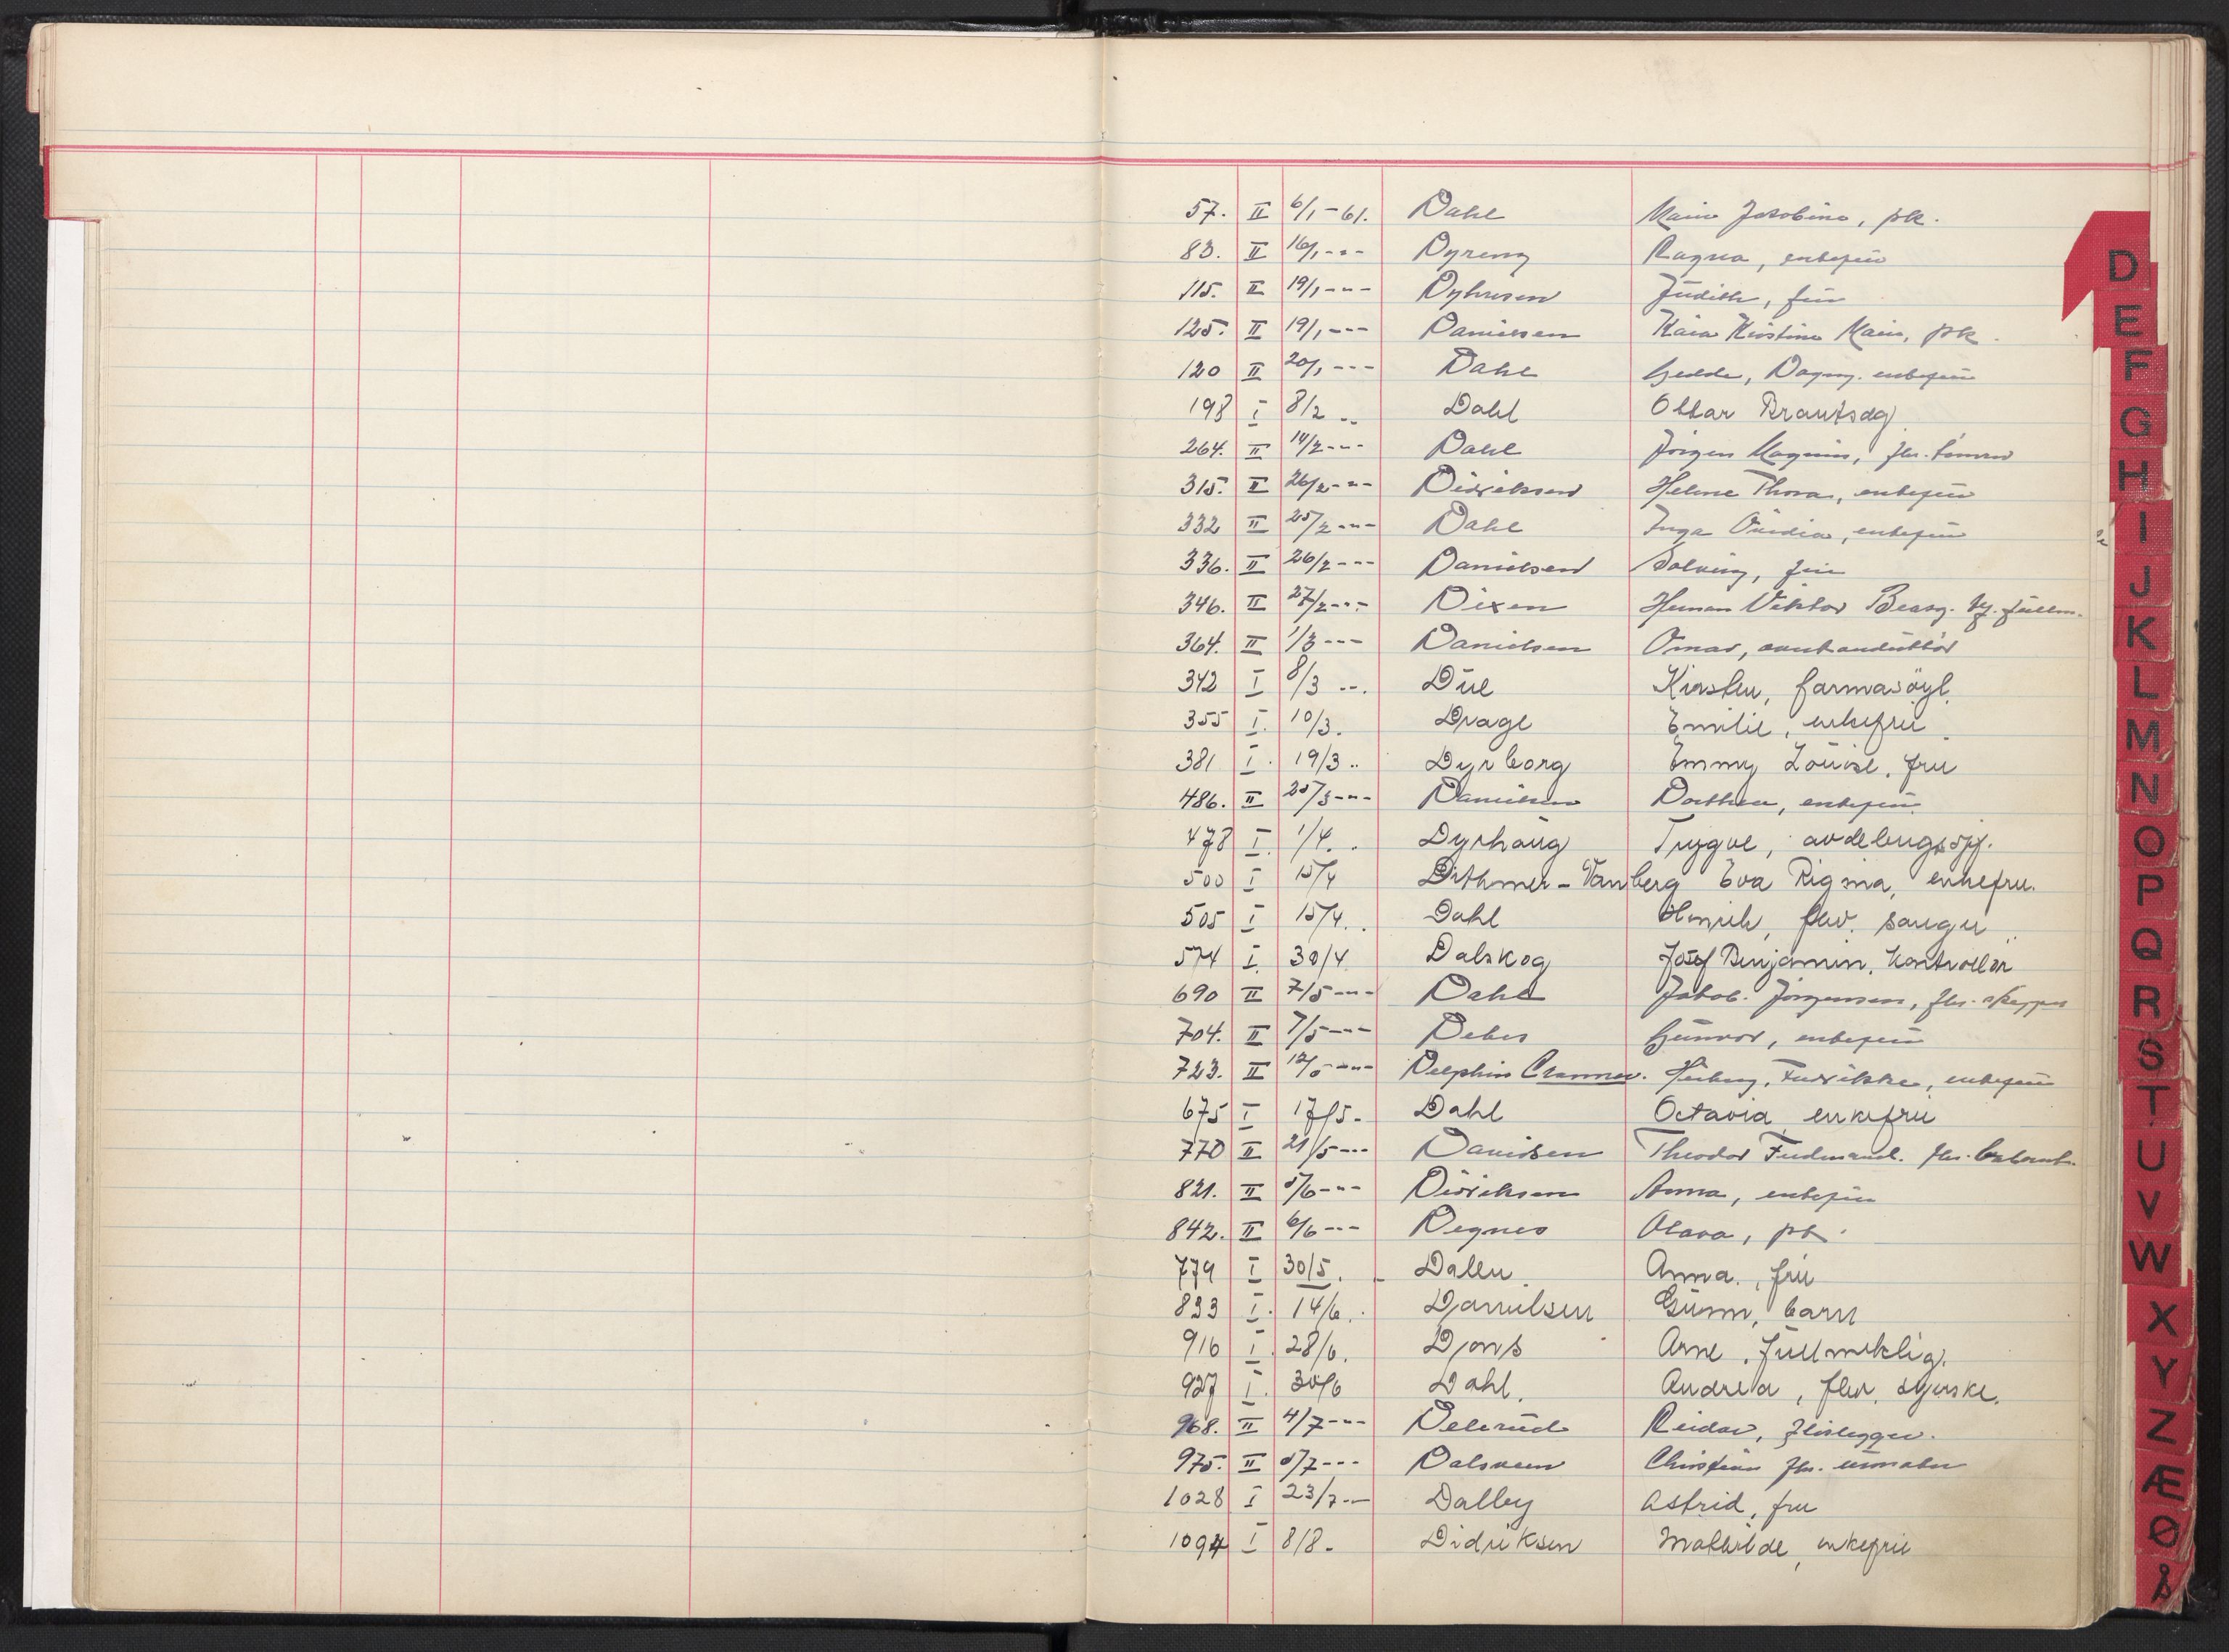 57. II 6/1-61. Dahl Jakobine, pk.
83. II 16/1 --- Dyreng Ragna, enkefrü
115. II 19/1 --- Judith, frü
125. II 19/1 --- Danielsen Kaia Kristine, pk.
120 II 20/1 --- Dahl Gedde, Dagny. enkefrü
198 I 8/2 .. Dahl Ottar
264. II 14/2 --- Dahl Jørgen Magnus, fhv.
315. II 26/2 --- Didriksen Helene Thora, enkefrü
332 II 25/2 --- Dahl Inga, enkefrü
336. II 26/2 --- Danielsen Solveig, frü
346. II 27/2 --- Dixen Herman Viktor
364. II 1/3 --- Danielsen Omar,
342 I 8/3 --. Düe Kirsten, farmasöyt.
355 I. 10/3. Drage Emilie, enkefrü
381 I. 19/3 .. Dyrborg Emmy Loüise, fru
486. II 25/3 --- Danielsen Dorthea, enkefrü
478 I. 1/4. . Dyrhaüg Trygve, avdelingssjef.
500 I 15/4 Dithmer - Eva Rigma, enkefru.
505 I 15/4. . Dahl Henrik, fhv.
574 I. 30/4 Dalskog Josef Benjamin, Kontrollør
690 II 7/5 --- Dahl Jakob. Jørgensen, fhv. skipper
704. II 7/5 --- Debes Günvor, enkefrü
723. II 12/5 --- Delphin Fredrikke, enkefrü
675 I 17/5 - Dahl Octavia, enkefrü
770 II 21/5 --- Danielsen Theodor Ferdinand. fhv.
821. II 5/6 --- Didriksen Anna, enkefrü
842. II 6/6 --- Degnes Olava, pk.
779 I 30/5. Dalen. Anna., frü
893 I. 14/6. . Danielsen Günn, barn
916 I. 28/6. Djons Arne, füllmektig.
927 I. 30/6 Dahl. Andrea, fhv. syerske.
968. II 4/7 --- Delerud Reidar, flislegger.
975. II 5/7 --- Dalsveen Christian fhv. urmaker
1028 I 23/7 -- Dalby Astrid, fru
1094 I 8/8 - Didriksen Mathilde, enkefrü
D
E
F
G
H
I
J
K
L
M
N
O
P
Q
R
S
T
U
V
W
X
Y
Z
Æ
Ø
Å